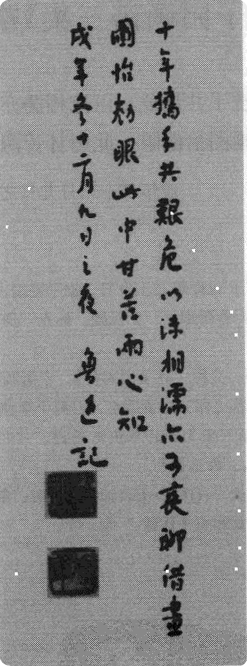 十年攜手共艱危以沫相濡亦可哀聊借畫
圖怡勌眼此中甘苦兩心知
戌年冬十二月九日之夜 魯迅記